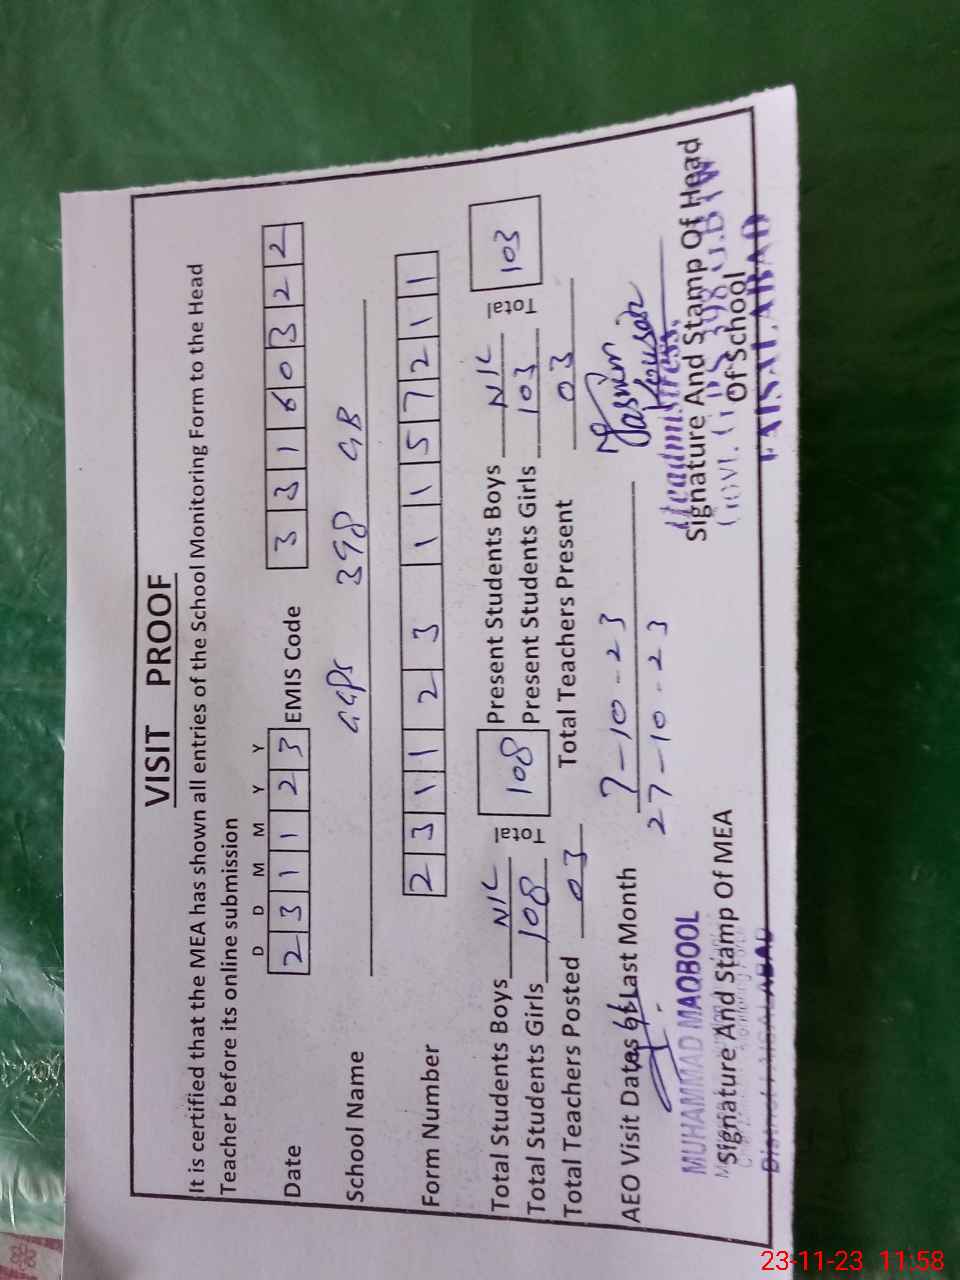 VISIT PROOF
It is certified that the MEA has shown all entries of the School Monitoring Form to the Head
Teacher before its online submission
D D M M Y Y
Date 2 3 1 1 2 3 EMIS Code 3 3 1 6 0 3 2 2
School Name GGPS 398 GB
Form Number 2 3 1 1 2 3 1 1 5 7 2 1 1
Total Students Boys NIL Total 108 Present Students Boys NIL Total 103
Total Students Girls 108 Present Students Girls 103
Total Teachers Posted 03 Total Teachers Present 03
AEO Visit Dates of Last Month 7-10-23
27-10-23
Yasmim Kousar
MUHAMMAD MAQBOOL
Headmistress,
Signature And Stamp Of MEA
Signature And Stamp Of Head
Of School
398 G.B
District FAISALABAD
FAISALABAD
23-11-23 11:58